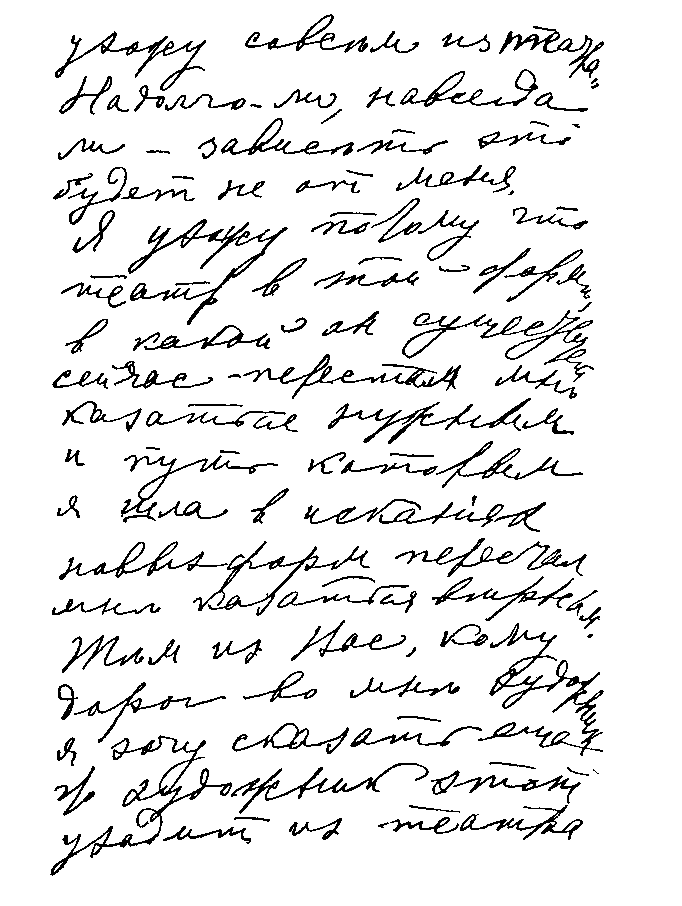 ухожу совсем из театра.
Надолго-ли, навсегда
ли – зависѣть это
будет не от меня.
Я ухожу потому что
театр в той – форм,
в какой он существует
сейчас – перестал мнѣ
казаться нужным
и путь которым
я шла в исканиях
новых форм перестал
мнѣ казаться вѣрным.
Тѣм из Вас, кому
дорог во мнѣ художник
я хочу сказать еще
что художник этот
уходит из театра